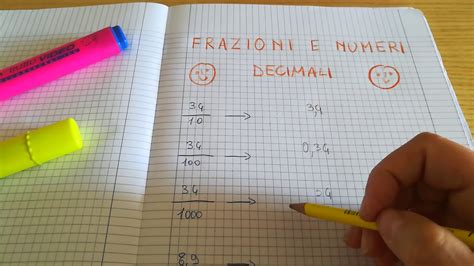 FRAZIONI E NUMERI
DECIMALI
34/10 → 3,4
34/100 → 0,34
34/1000 →